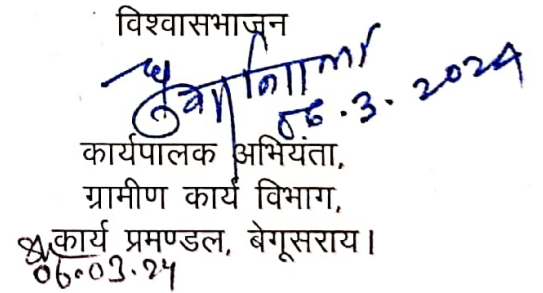 विश्वासभाजन
06.3.2024
कार्यपालक अभियंता,
ग्रामीण कार्य विभाग,
कार्य प्रमण्डल, बेगूसराय।
06.03.24